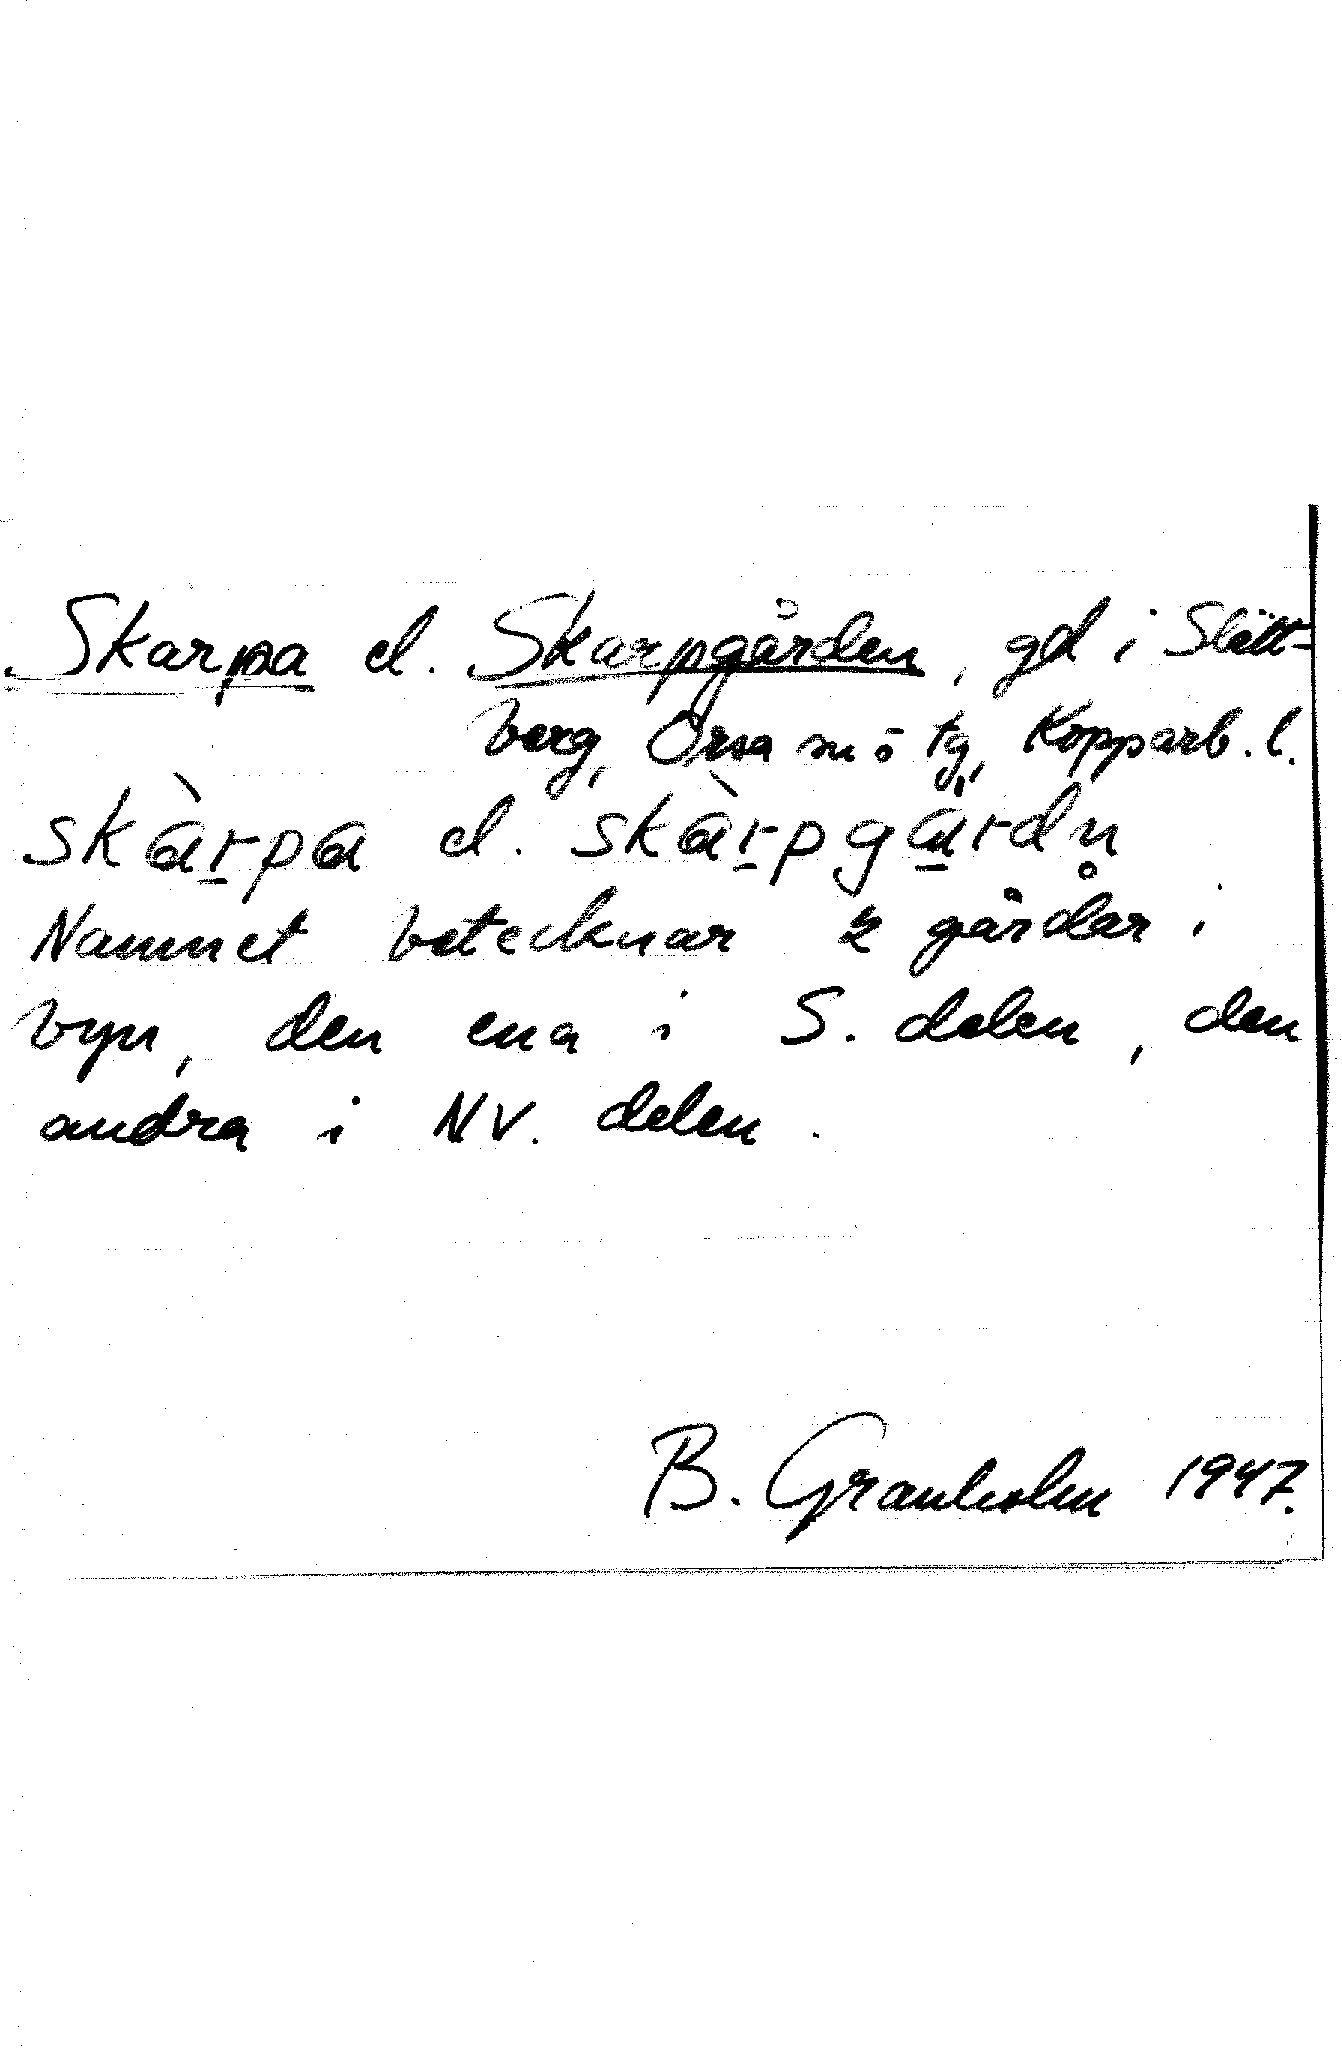 Skarpa el. Skarpgården, gd i Slätt-
berg, Orsa sn o tg, Kopparb. l.
skàr̠pa el. skàr̠pgä̠rdn̥
Namnet betecknar 2 gårdar i
byn, den ena i S. delen, den
andra i NV. delen.
B. Granholm 1947.